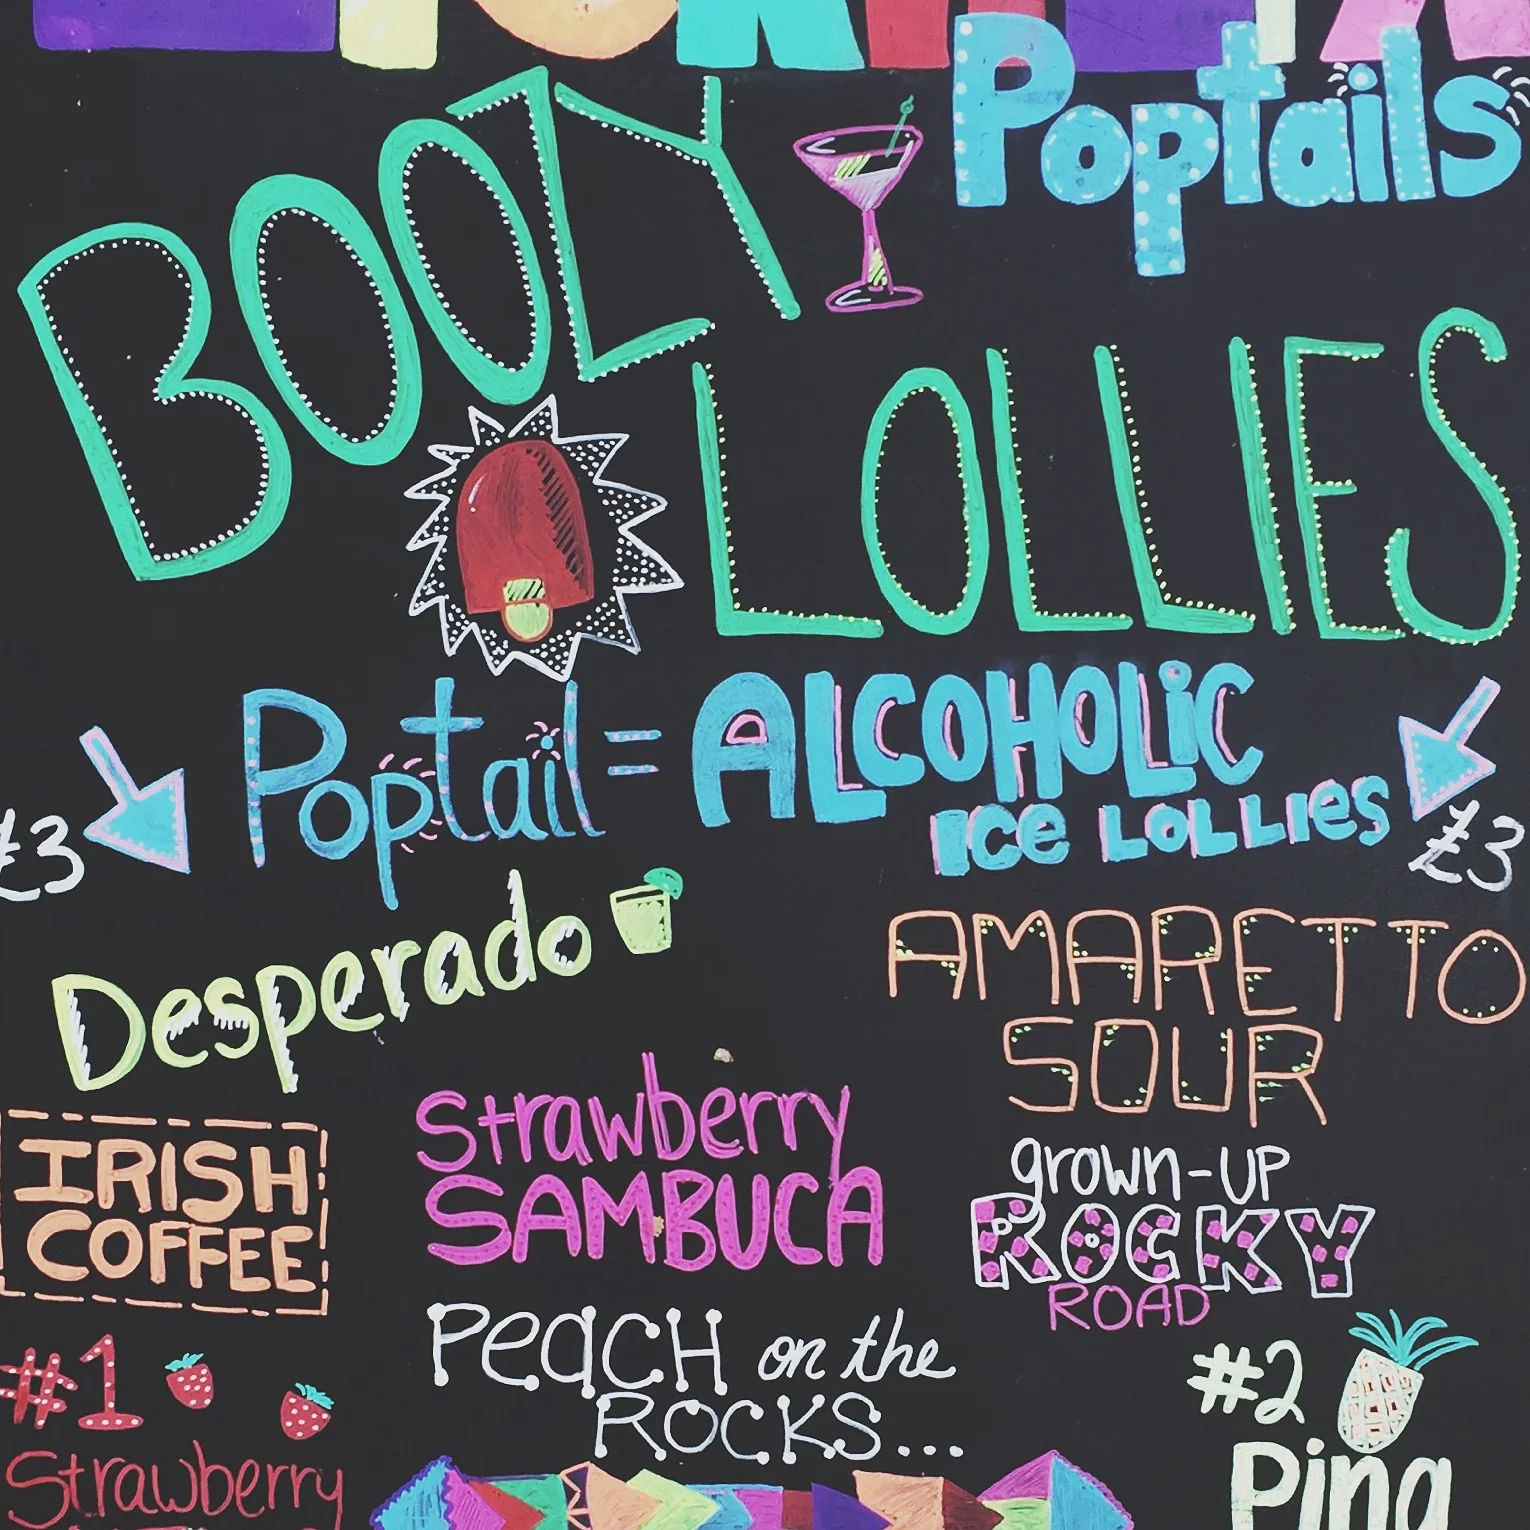 Poptails
BOOZY
LOLLIES
Poptail = ALCOHOLiC
ICe LoLLIes
£3
£3
Desperado
AMARETTO
SOUR
IRISH
COFFEE
Strawberry
SAMBUCA
grown-UP
ROCKY
ROAD
PeacH on the
ROCKS...
#1
Strawberry
#2